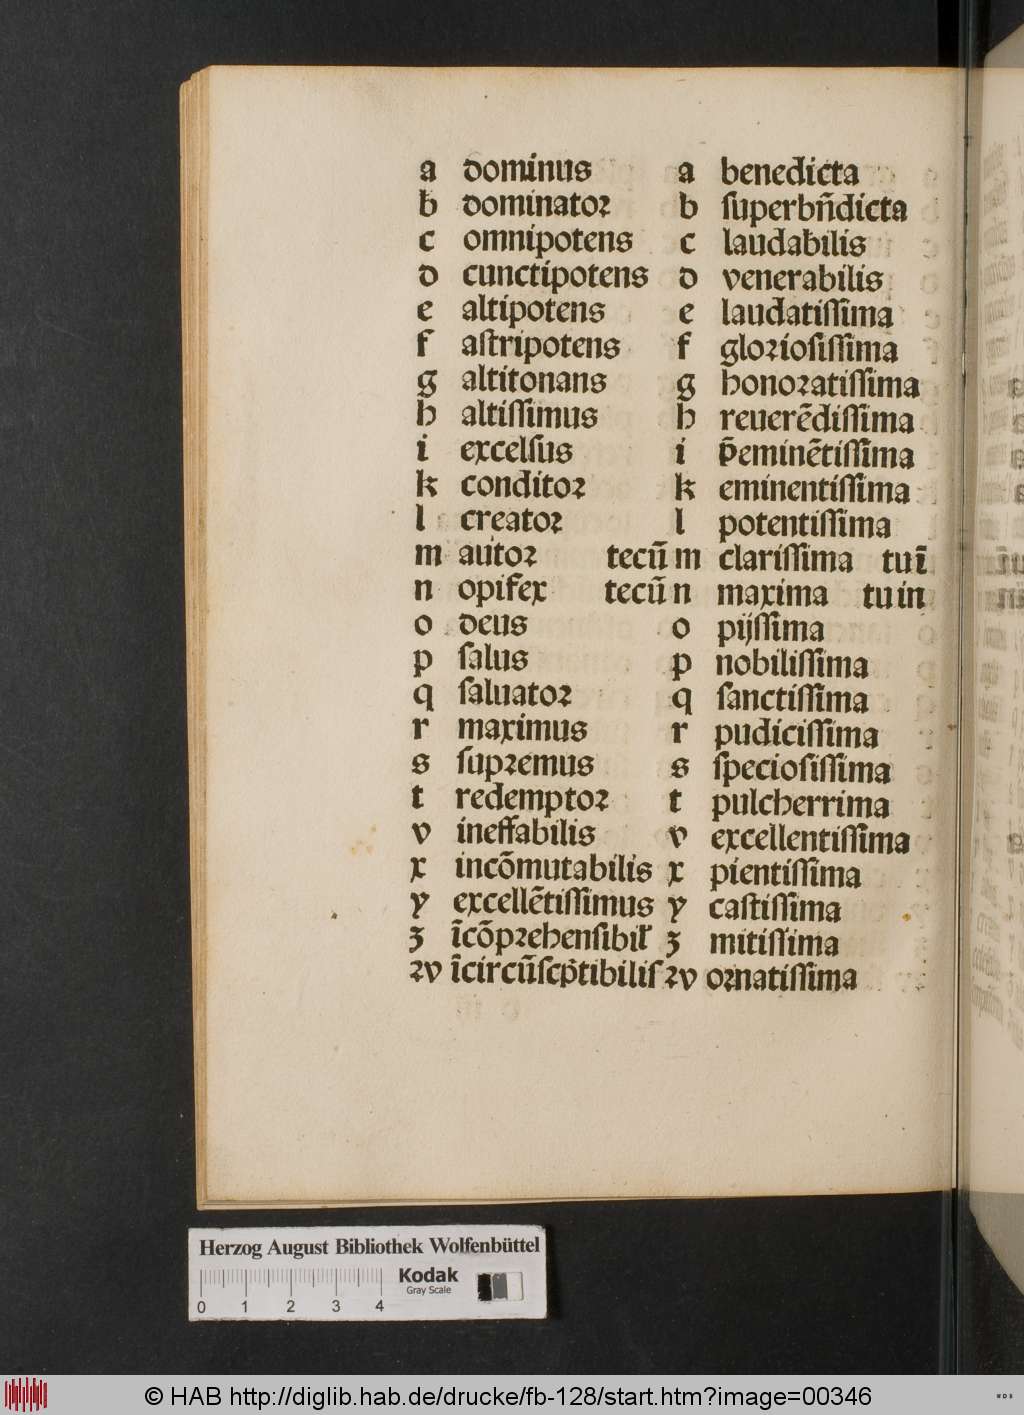 a dominus a benedicta
b dominatoꝛ b ſuperbn̄dicta
c omnipotens c laudabilis
d cunctipotens d venerabilis
e altipotens e laudatiſſima
f aſtripotens f gloꝛioſiſſima
g altitonans g honoꝛatiſſima
h altiſſimus h reuerēdiſſima
i excelſus i p̄eminētiſſima
k conditoꝛ k eminentiſſima
l creatoꝛ l potentiſſima
m autoꝛ tecū m clariſſima tuī
n opifex tecū n maxima tuin
o deus o pijſſima
p ſalus p nobiliſſima
q ſaluatoꝛ q ſanctiſſima
r maximus r pudiciſſima
s ſupꝛemus s ſpecioſiſſima
t redemptoꝛ t pulcherrima
v ineffabilis v excellentiſſima
x incōmutabilis x pientiſſima
y excellētiſſimus y caſtiſſima
ʒ īcōpꝛehenſibil̛ ʒ mitiſſima
ꝛv īcircūſcp̄tibiliſ ꝛv oꝛnatiſſima
Herzog August Bibliothek Wolfenbüttel
Kodak
Gray Scale
0 1 2 3 4
© HAB http://diglib.hab.de/drucke/fb-128/start.htm?image=00346